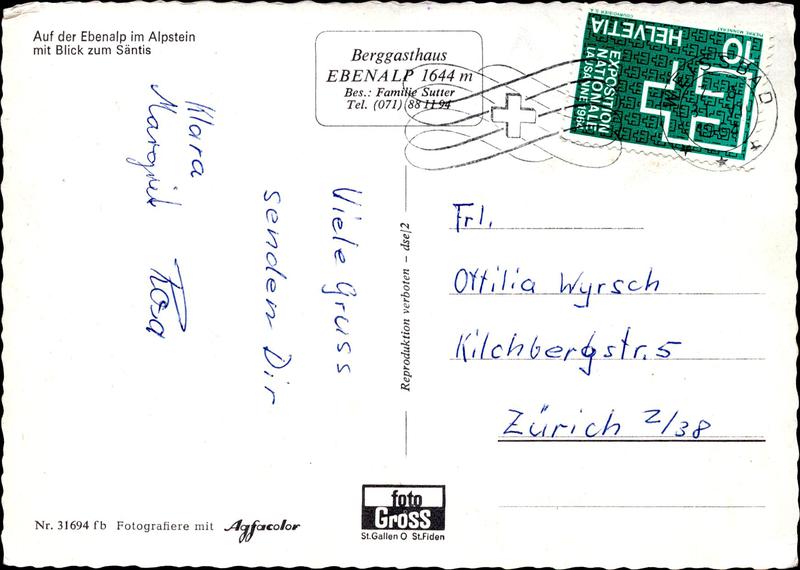 Auf der Ebenalp im Alpstein
mit Blick zum Säntis
Berggasthaus
EBENALP 1644 m
Bes.: Familie Sutter
Tel. (071) 88 11 94
HELVETIA
10
EXPOSITION
NATIONALE
LAUSANNE 1964
WEISSBAD
Viele Gruss
senden Dir
Klara
Margrit Rosa
Reproduktion verboten – dse/2
Frl.
Ottilia Wyrsch
Kilchbergstr. 5
Zürich 2/38
Nr. 31694 fb Fotografiere mit Agfacolor
foto
Gross
St.Gallen O St.Fiden